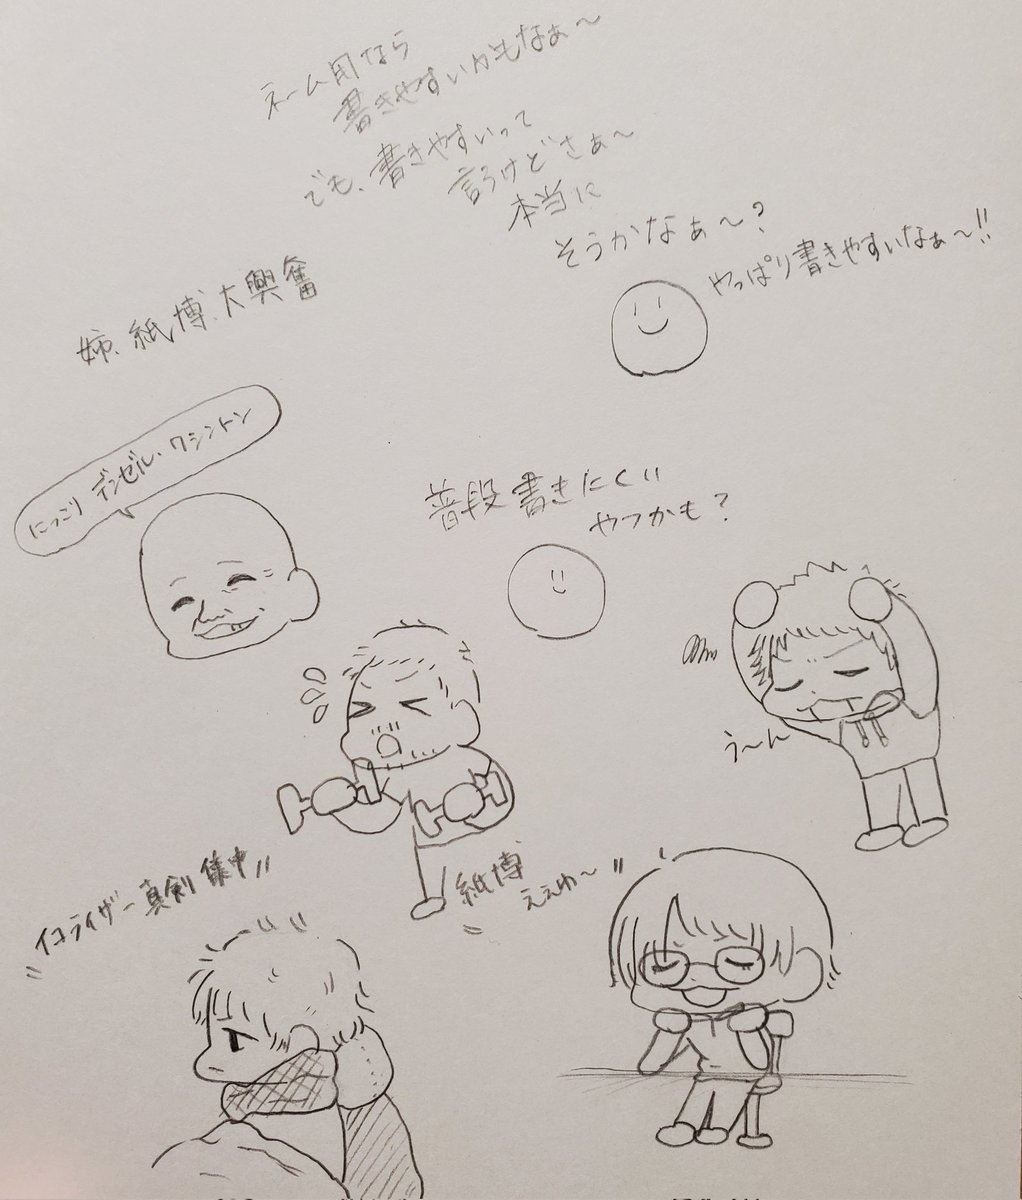 ネーム用なら
書きやすいかもなぁ〜
でも、書きやすいって
言うけどさぁ〜
本当に
そうかなぁ〜?
やっぱり書きやすいなぁ〜!!
姉、紙博、大興奮
にっこり デンゼル・ワシントン
普段書きにくい
やつかも?
う〜ん
イコライザー真剣集中
紙博
ええわ〜